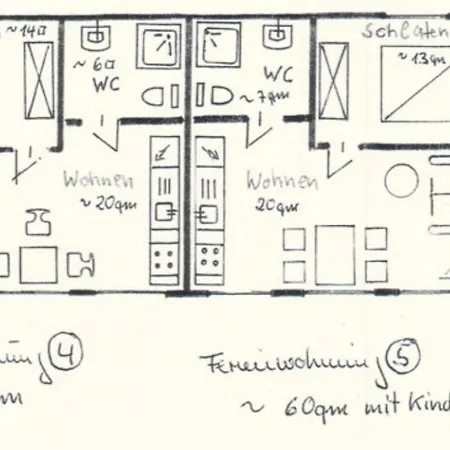 ~14□
Schlafen
~13qm
~6□
WC
WC
~7qm
Wohnen
~20qm
Wohnen
20qm
4
Ferienwohnung 5
~ 60qm mit Kind